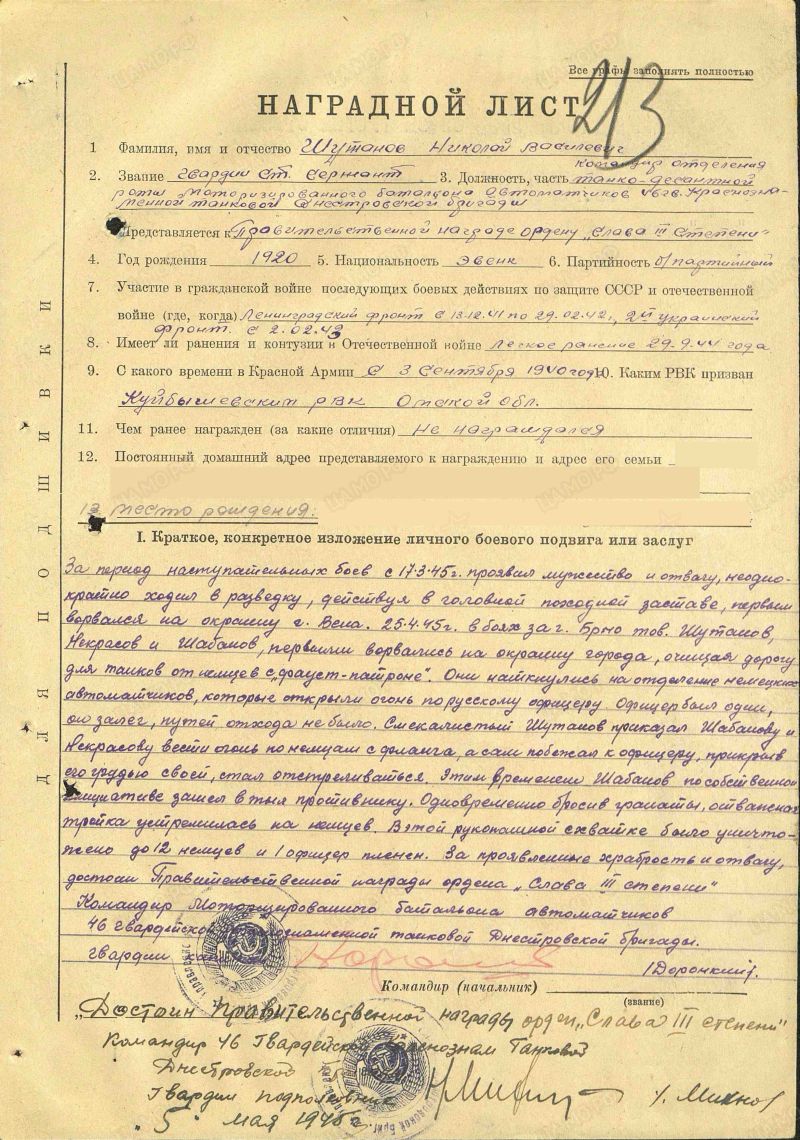 Все графы заполнять полностью
213
НАГРАДНОЙ ЛИСТ
1 Фамилия, имя и отчество Шутанов Николай Василевич
2. Звание Гвардии Ст. Сержант 3. Должность, часть командир отделения танко-десантной
роты Моторизированного батальона Автоматчиков 46гв. Краснозна-
менной танковой Днестровской бригады
Представляется к Правительственной награде ордену „Слава III Степени"
4. Год рождения 1920 5. Национальность эвенк 6. Партийность б/партийный
7. Участие в гражданской войне последующих боевых действиях по защите СССР и отечественной
войне (где, когда) Ленинградский фронт с 13.12.41 по 29.02.42г., 2й украинский
фронт с 2.02.43
8. Имеет ли ранения и контузии в Отечественной войне Легкое ранение 29.9.44 года
9. С какого времени в Красной Армии С 3 Сентября 1940 года 10. Каким РВК призван
Куйбышевским РВК Омской обл.
11. Чем ранее награжден (за какие отличия) Не награждался
12. Постоянный домашний адрес представляемого к награждению и адрес его семьи
13. место рождения:
ДЛЯ ПОДШИВКИ
I. Краткое, конкретное изложение личного боевого подвига или заслуг
За период наступательных боев с 17.3.45г. проявил мужество и отвагу, неодно-
кратно ходил в разведку, действуя в головной походной заставе, первым
ворвался на окраину г. Вена. 25.4.45г. в боях за г. Брно тов. Шутанов,
Некрасов и Шабанов, первыми ворвались на окраину города, очищая дорогу
для танков от немцев с „фауст-патроне". Они наткнулись на отделение немецких
автоматчиков, которые открыли огонь по русскому офицеру. Офицер был один,
он залег, путей отхода не было. Смекалистый Шутанов приказал Шабанову и
Некрасову вести огонь по немцам с фланга, а сам побежал к офицеру, прикрыв
его грудью своей, стал отстреливаться. Этим временем Шабанов по собственной
инициативе зашел в тыл противнику. Одновременно бросив гранаты, отважная
тройка устремилась на немцев. В этой рукопашной схватке было уничто-
жено до 12 немцев и 1 офицер пленен. За проявленные храбрость и отвагу,
достоин Правительственной награды ордена „Слава III степени"
Командир Моторизированного батальона автоматчиков
46 гвардейской Краснознаменной танковой Днестровской бригады.
гвардии
/Доронкий/.
Командир (начальник)
(звание)
„Достоин Правительственной награды орден „Слава III степени"
Командир 46 Гвардейской Танковой
Днестровской
Гвардии подполковник
"5" мая 1945г.